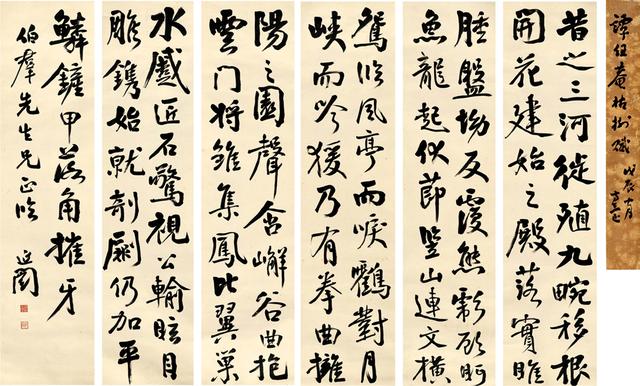 譚組菴枯樹賦
戊辰十月
昔之三河徙殖九畹移根
開花建始之殿落實睢
腫盤坳反覆熊彪顧盻
魚龍起伏節竪山連文橫
鴛臨風亭而唳鶴對月
峽而吟猨乃有拳曲擁
陽之園聲含嶰谷曲抱
雲門將雛集鳳比翼巢
水蹙匠石驚視公輸眩目
雕鐫始就剞劂仍加平
鱗鏟甲落角摧牙
伯羣先生兄正臨
延闓